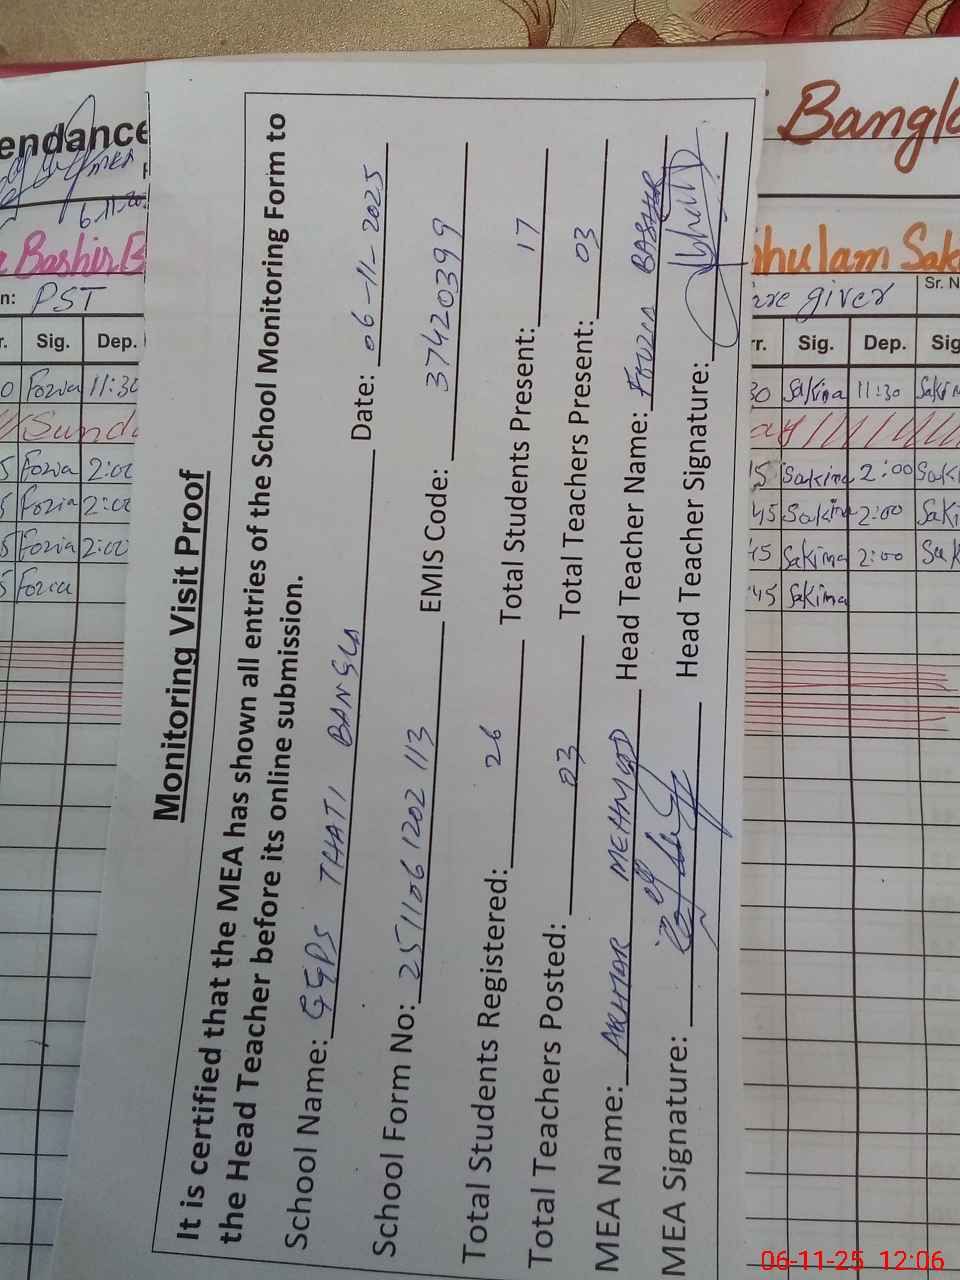 Monitoring Visit Proof
It is certified that the MEA has shown all entries of the School Monitoring Form to
the Head Teacher before its online submission.
School Name: GGPS THATI BANGLA Date: 06-11-2025
School Form No: 251106 1202 113 EMIS Code: 37420399
Total Students Registered: 26 Total Students Present: 17
Total Teachers Posted: 03 Total Teachers Present: 03
MEA Name: MEHMOOD Head Teacher Name: FOUZIA BASHIR
MEA Signature: Head Teacher Signature:
endance
6.11.20
Bashir B
n: PST
r. Sig. Dep.
0 Fozia 11:30
Sund
5 Fozia 2:00
5 Fozia 2:00
5 Fozia 2:00
5 Fozia
Bangl
hulam Sak
are giver Sr. N
rr. Sig. Dep. Sig
30 Sakina 11:30 Sakin
ay
45 Sakina 2:00 Saki
45 Sakina 2:00 Saki
45 Sakina 2:00 Sak
45 Sakina
06-11-25 12:06